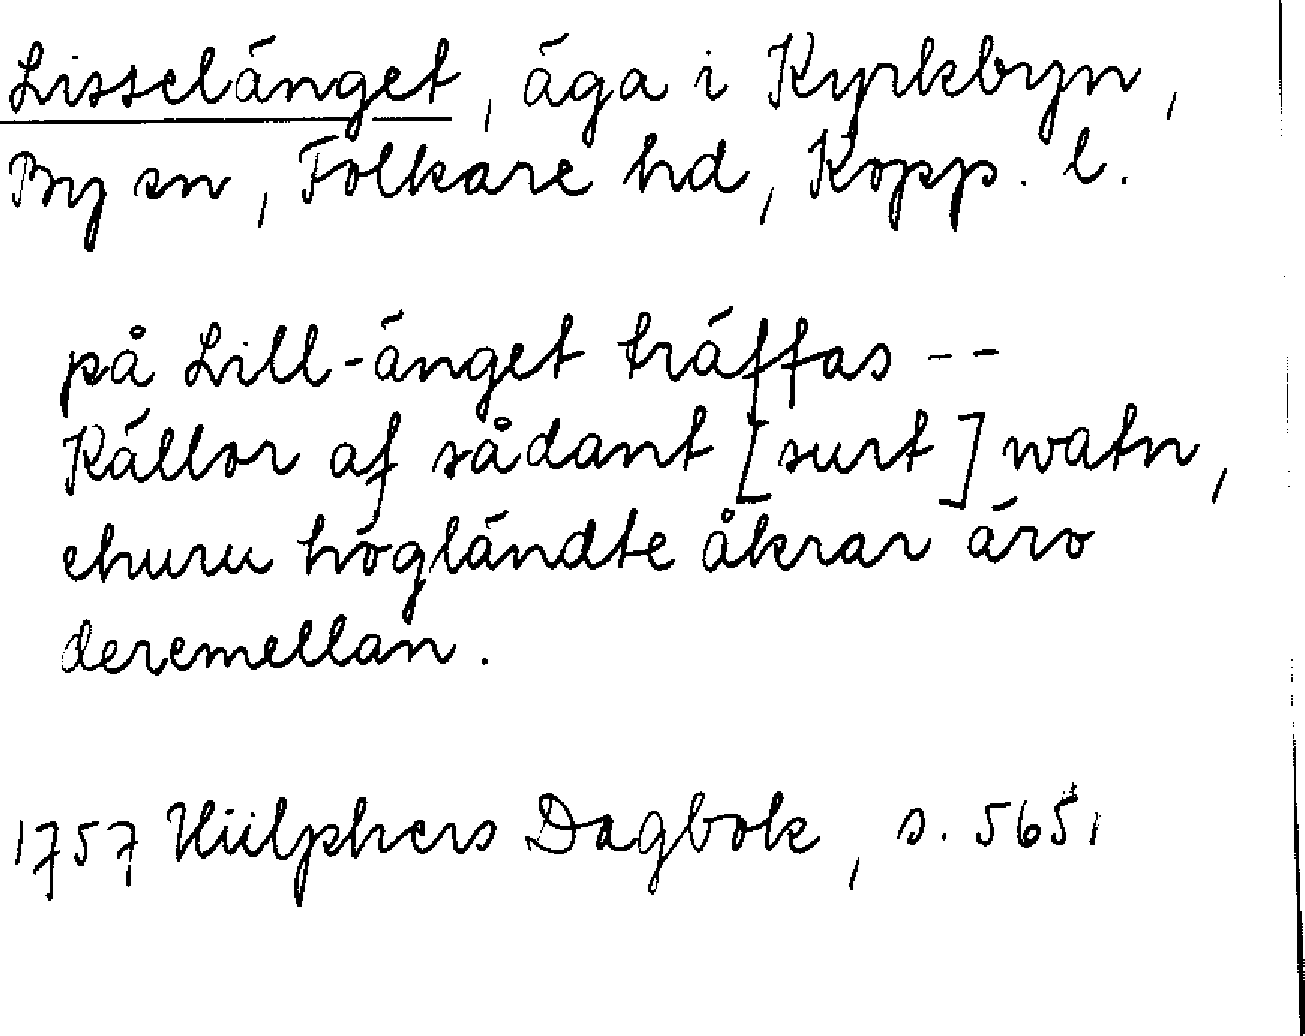 Lisselänget, äga i Kyrkbyn,
By sn, Folkare hd, Kopp. l.
på Lill-änget träffas --
Källor af sådant [surt] watn,
ehuru högländte åkrar äro
deremellan.
1757 Hülphers Dagbok, s. 565